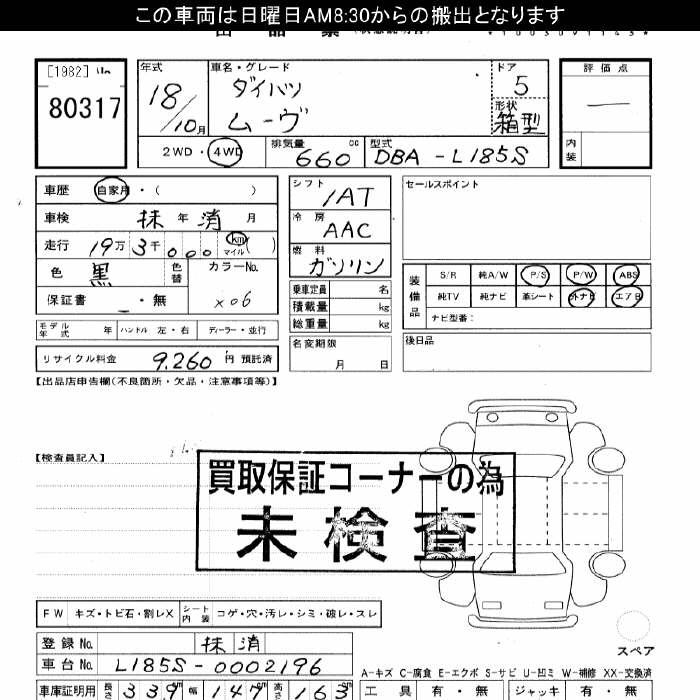 この車両は日曜日AM8:30からの搬出となります
[1982] No
80317
年式 18/10月
車名・グレード ダイハツ ムーヴ
ドア 5
形状 箱型
評価点 —
内装
2WD・4WD
排気量 660 cc
型式 DBA-L185S
車歴 自家用・( )
車検 抹 年 消 月
走行 19万3千000 km マイル ( )
色 黒 色替 カラーNo. X06
保証書 ・無
シフト IAT
冷房 AAC
燃料 ガソリン
乗車定員 名
積載量 kg
総重量 kg
名変期限 月 日
セールスポイント
装備品 S/R 純A/W P/S P/W ABS
純TV 純ナビ 革シート 外ナビ エアB
ナビ型番:
後日品
モデル年式 年 ハンドル 左・右 ディーラー・並行
リサイクル料金 9.260 円 預託済
【出品店申告欄(不良箇所・欠品・注意事項等)】
【検査員記入】
買取保証コーナーの為
未検査
FW キズ・トビ石・割レX シート内装 コゲ・穴・汚レ・シミ・破レ・スレ
スペア
登録No. 抹消
車台No. L185S-0002196
A-キズ C-腐食 E-エクボ S-サビ U-凹ミ W-補修 XX-交換済
車庫証明用 長さ 339 幅 147 高さ 163
工具 有・無 ジャッキ 有・無